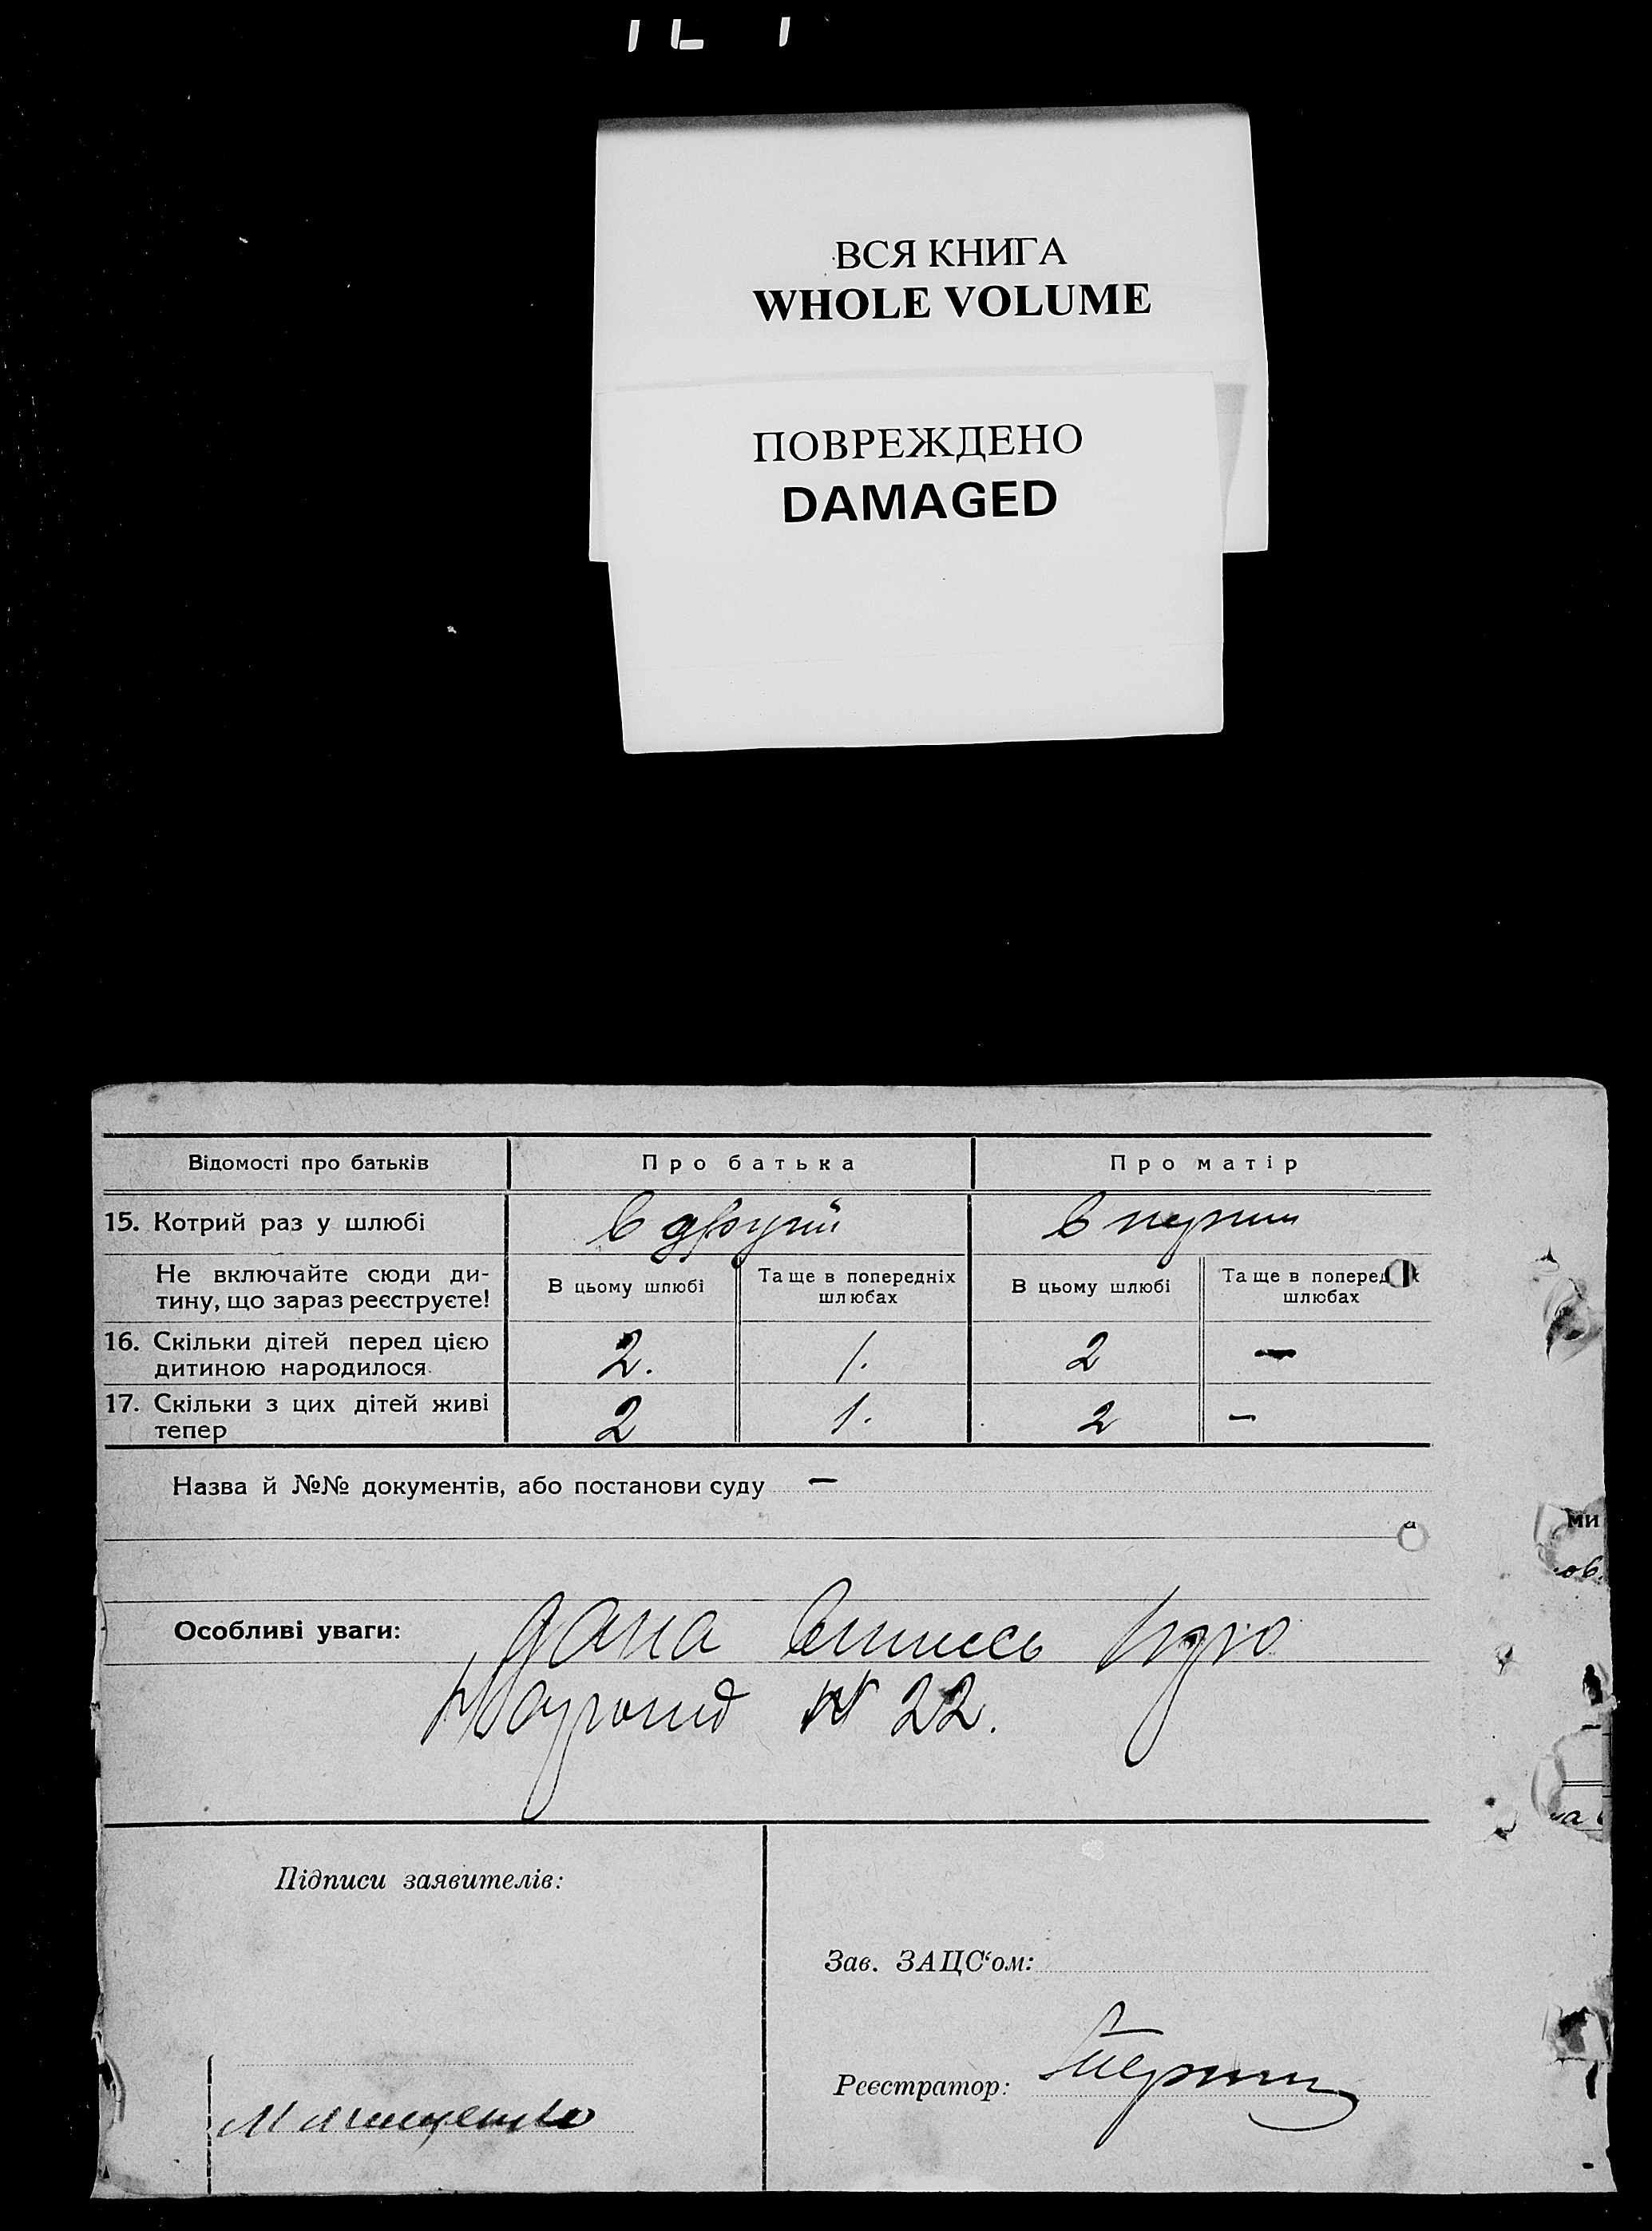 ВСЯ КНИГА
WHOLE VOLUME
ПОВРЕЖДЕНО
DAMAGED
Відомості про батьків
Про батька
Про матір
15. Котрий раз у шлюбі
в другий
в перши
Не включайте сюди ди-
тину, що зараз реєструєте!
В цьому шлюбі
Та ще в попередніх
шлюбах
В цьому шлюбі
Та ще в поперед х
шлюбах
16. Скільки дітей перед цією
дитиною народилося
2.
1.
2
—
17. Скільки з цих дітей живі
тепер
2
1.
2
—
Назва й №№ документів, або постанови суду —
Особливі уваги: Дана випись
№ 22.
ми
ов.
Підписи заявителів:
Зав. ЗАЦС‘ом:
Реєстратор: